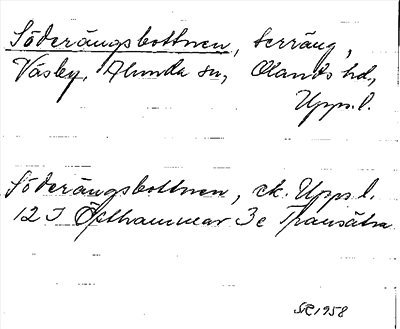 Söderängsbottnen, terräng,
Väsby, Alunda sn, Olands hd,
Upps. l.
Söderängsbottnen, ek. Upps. l.
12 I Östhammar 3c Transätra
SR 1958